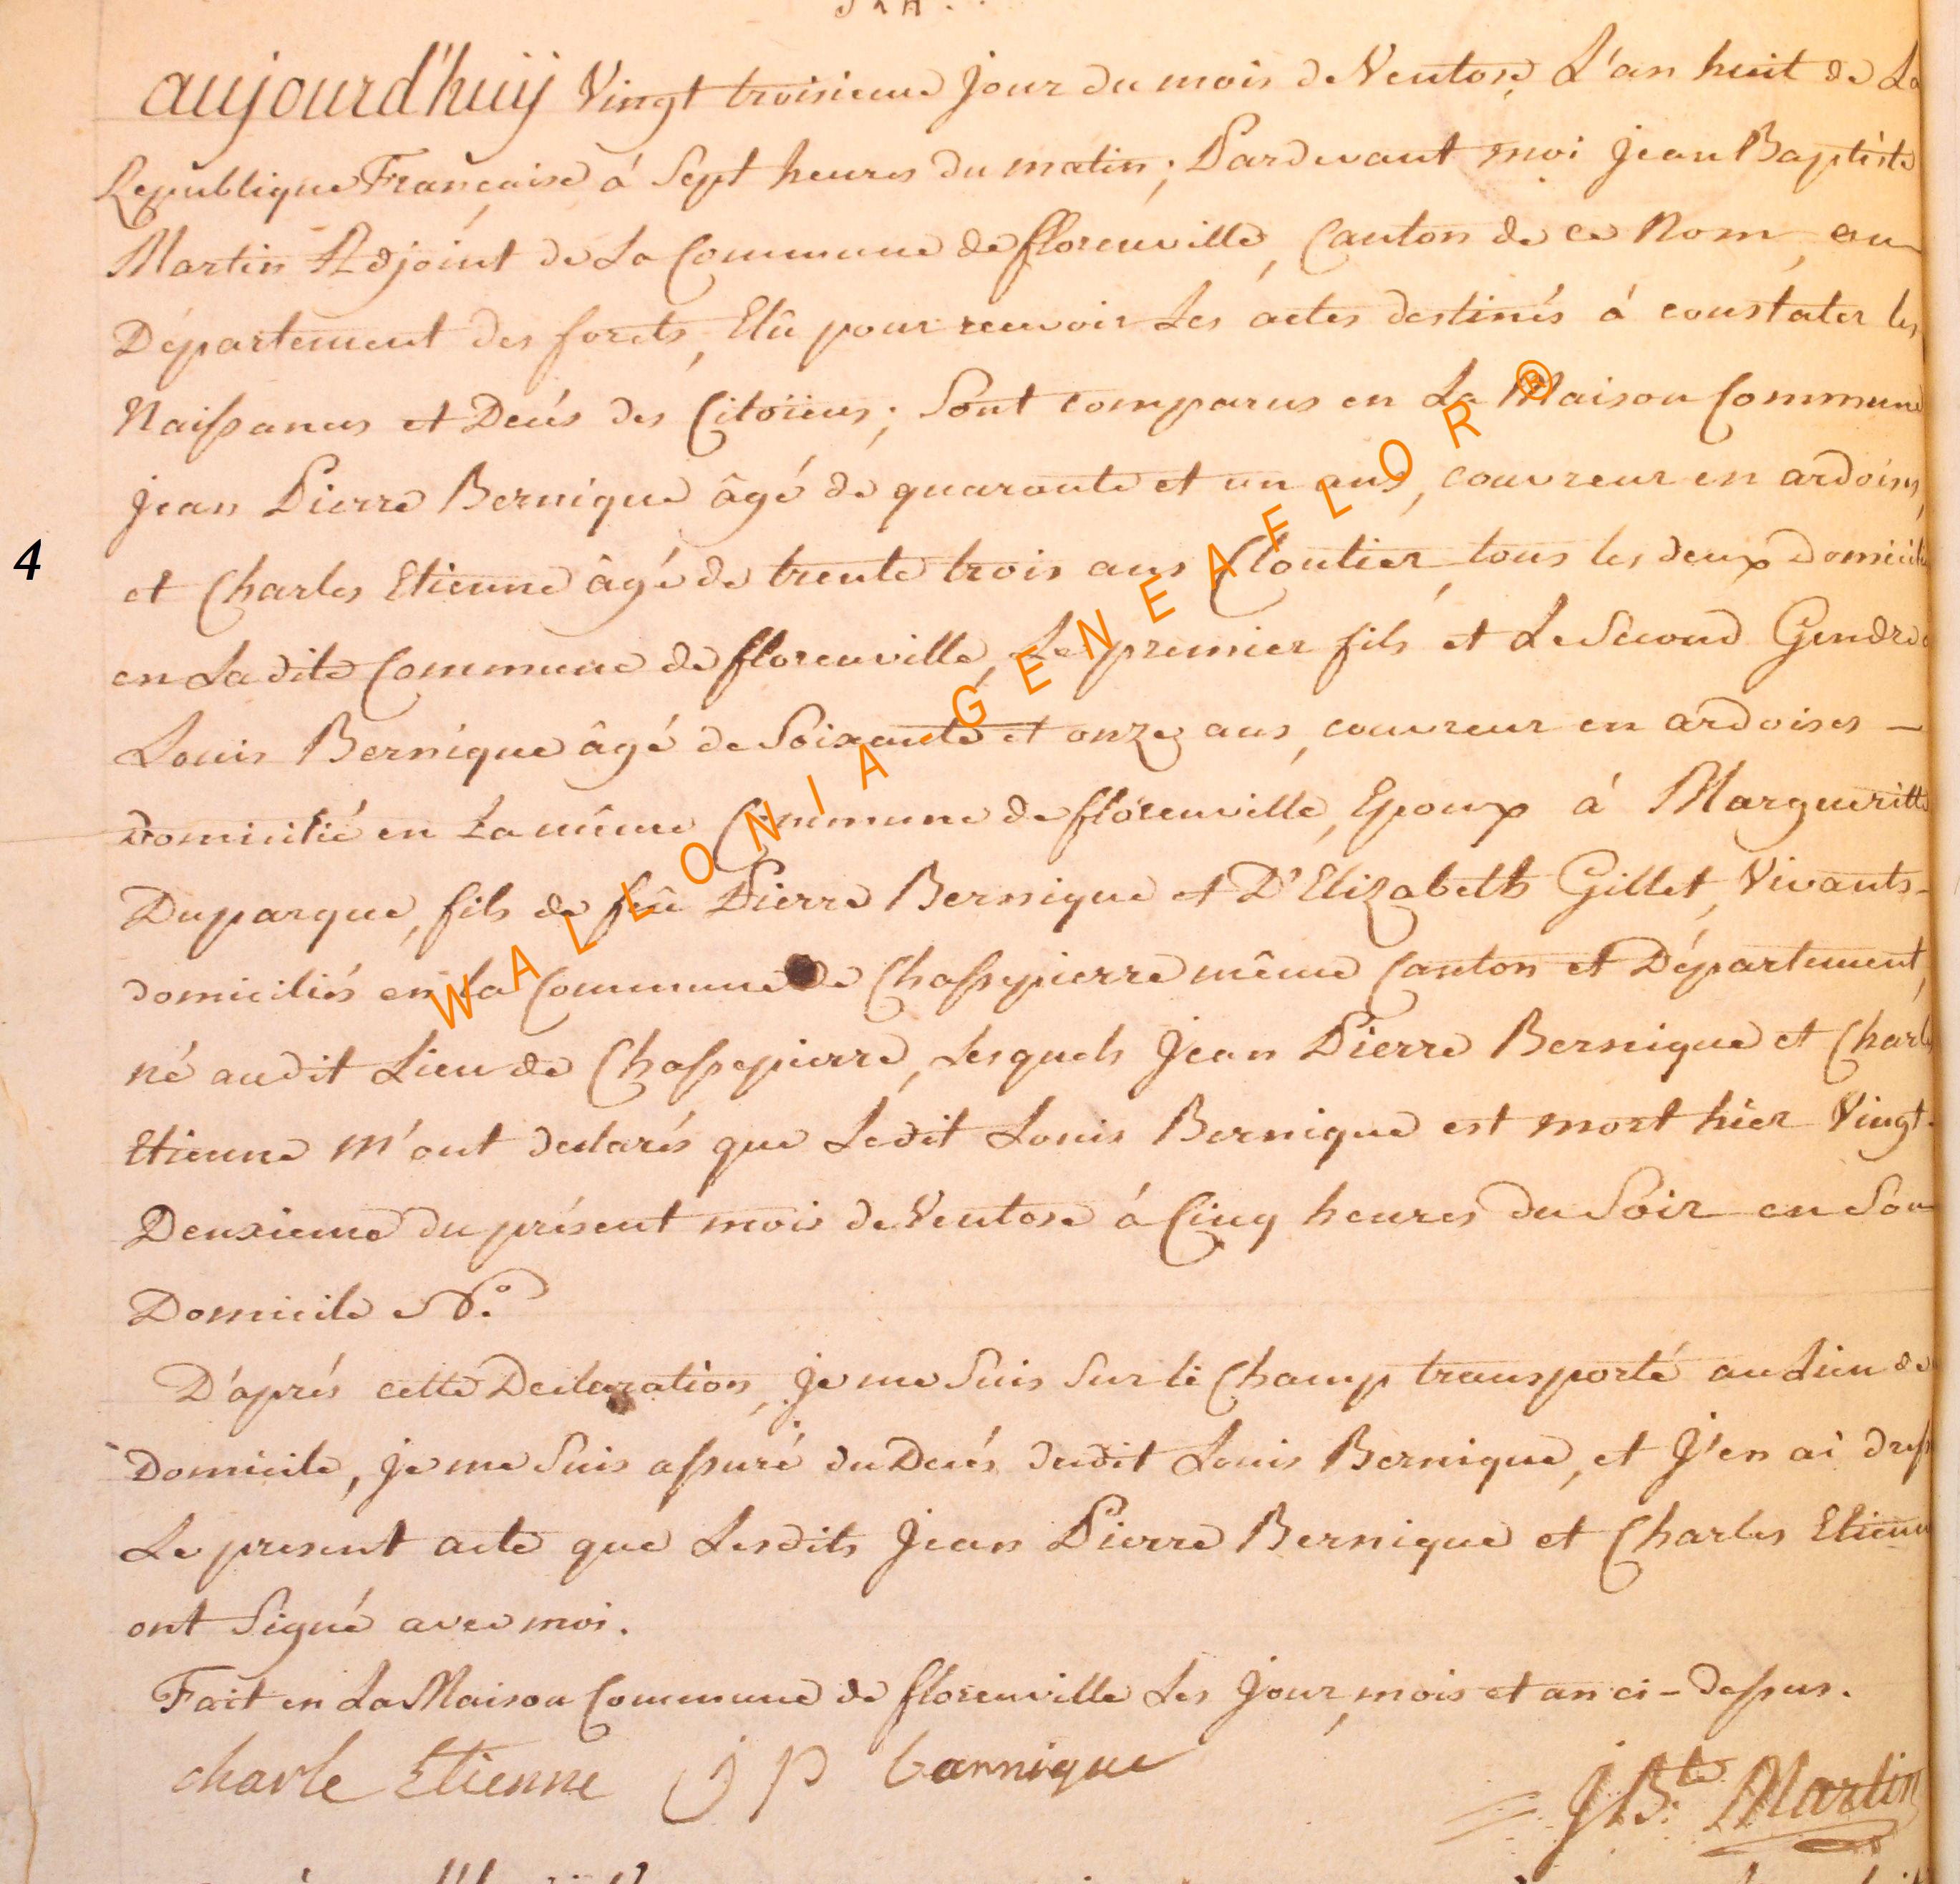 aujourd'huij Vingt troisieme jour du mois de Ventose, L'an huit de La
Republique Française á Sept heures du matin; Pardevant moi jean Baptiste
Martin Adjoint de La Commune de florenville, Canton de ce Nom, au
Département des forets, Elû pour recevoir Les actes destinés á constater les
Naissances et Decés des Citoïens; Sont comparus en La Maison Commune
jean Pierre Bernique âgé de quarante et un ans, couvreur en ardoises,
4
et Charles Etienne âgé de trente trois ans Cloutier, tous les deux Domiciliés
en Ladite Commune de florenville, Le premier fils et Le Second Gendre
Louis Bernique âgé de Soixante et onze ans, couvreur en ardoises –
Domicilié en La même Commune de florenville, Epoux á Margueritte
Duparque, fils de feû Pierre Bernique et D'Elizabeth Gillet, Vivants-
domiciliés en la Commune de Chassepierre même Canton et Département,
né audit Lieu de Chassepierre, Lesquels Jean Pierre Bernique et Charles
Etienne M'ont declarés que Ledit Louis Bernique est mort hier Vingt-
Deuxieme du présent mois de Ventose á Cinq heures du Soir en Son
Domicile N.º
D'aprés cette Declaration, je me Suis Sur le Champ transporté au Lieu de
Domicile, je me Suis assuré du Decés dudit Louis Bernique, et J'en ai dressé
Le present acte que Lesdits Jean Pierre Bernique et Charles Etienne
ont Signé avec moi.
Fait en La Maison Commune de florenville Les jour, mois et an ci-dessus.
charle Etienne J P barnique
JBte. Martin
WALLONIA GENEAFLOR ®